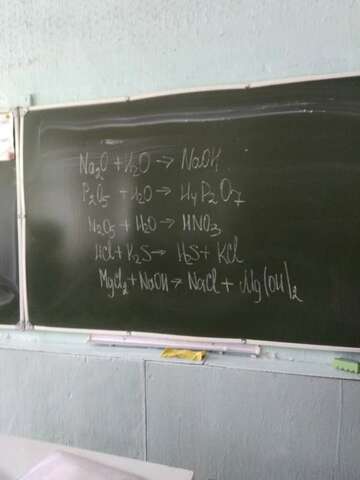 Na₂O + H₂O → NaOH
P₂O₅ + H₂O → H₄P₂O₇
N₂O₅ + H₂O → HNO₃
HCl + K₂S → H₂S + KCl
MgCl₂ + NaOH → NaCl + Mg(OH)₂